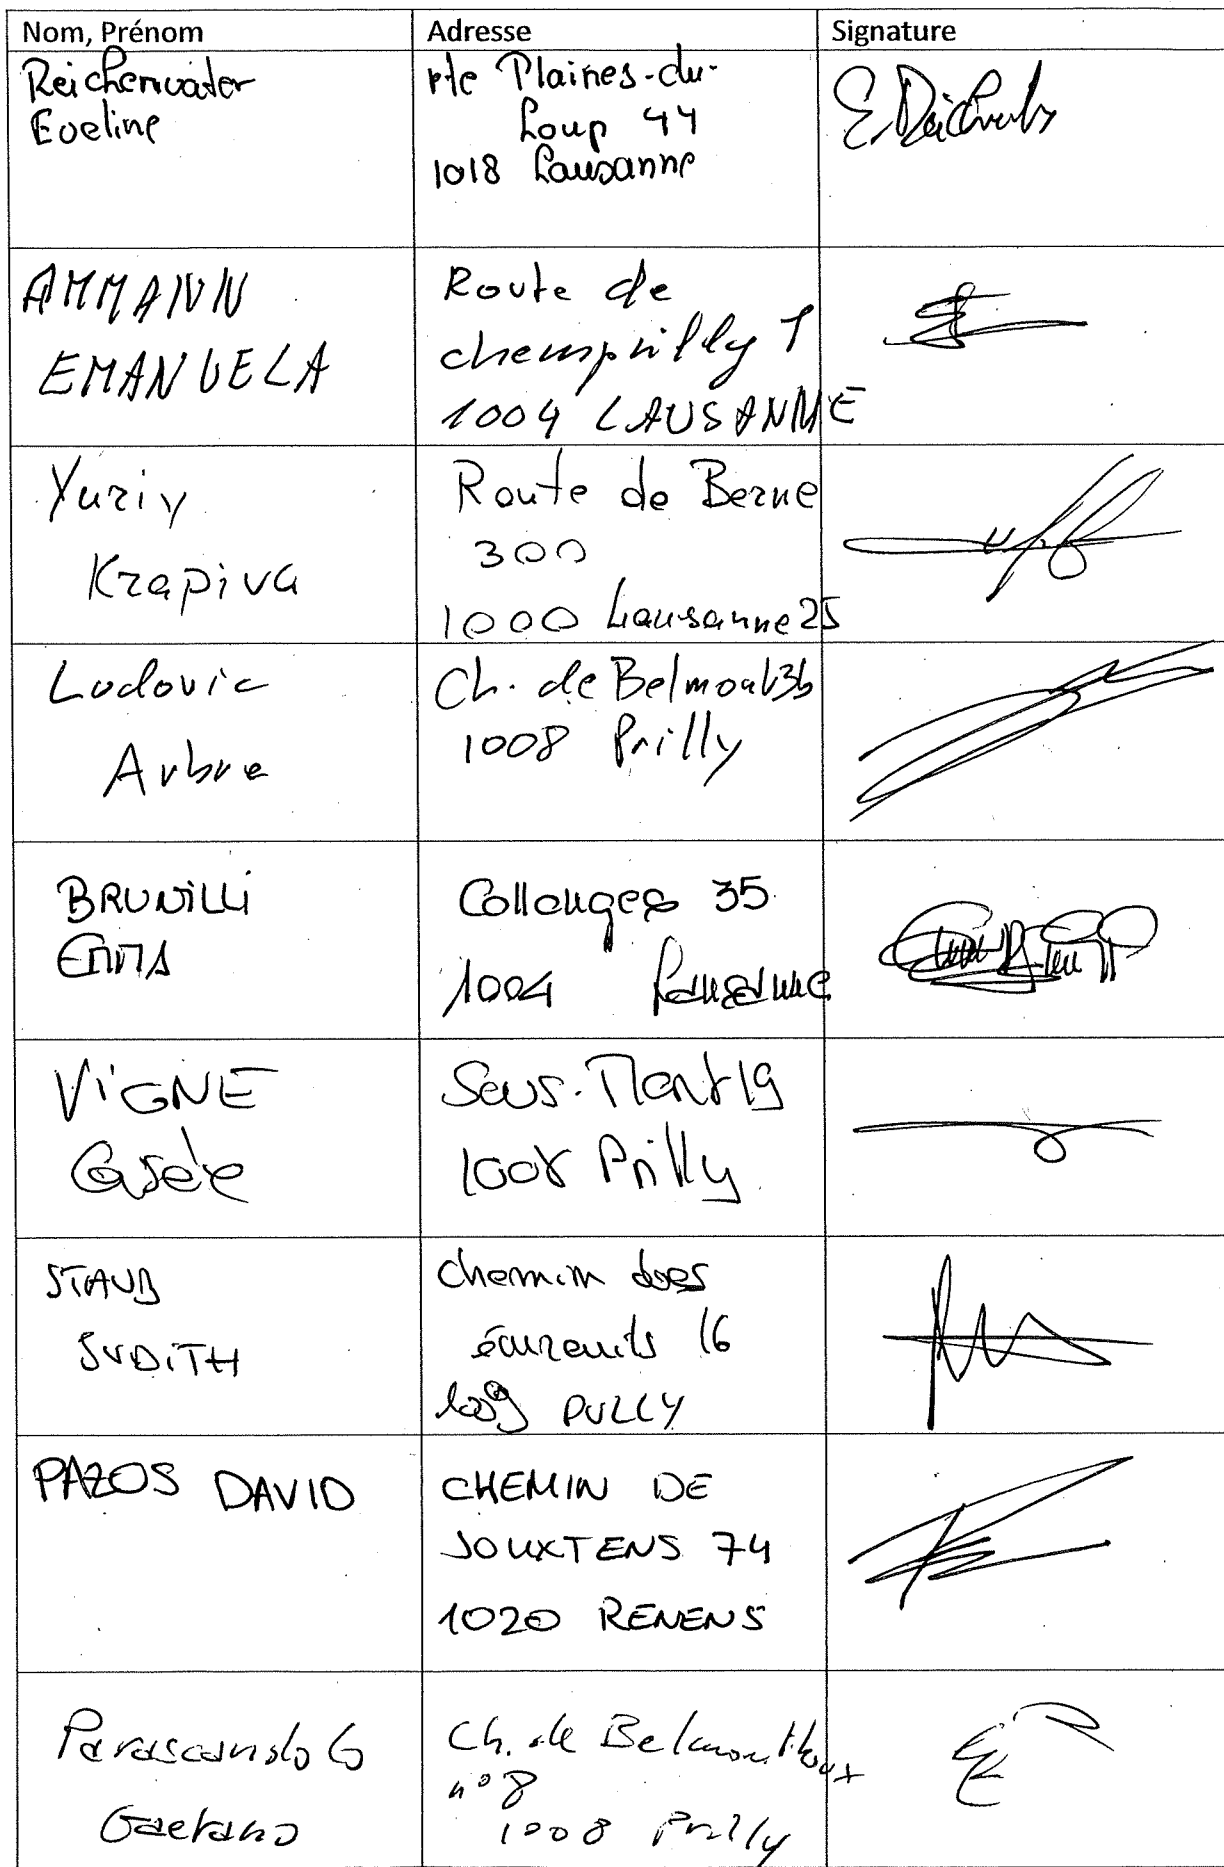 Nom, Prénom Adresse Signature
Reichenvater
Eveline
rte Plaines-du-
Loup 44
1018 Lausanne
AMMANN
EMANUELA
Route de
1004 LAUSANNE
Yuriy
Krapiva
Route de Berne
300
1000 Lausanne 25
Ludovic
Arbre
Ch. de Belmont 3b
1008 Prilly
BRUNILLI
EMMA
Collonges 35
1004 Lausanne
VIGNE
Sous-Mont 19
1008 Prilly
STAUB
JUDITH
chemin des
écureuils 16
1009 PULLY
PAZOS DAVID
CHEMIN DE
JOUXTENS 74
1020 RENENS
Parascandolo
Gaetano
Ch. de
n° 8
1008 Prilly